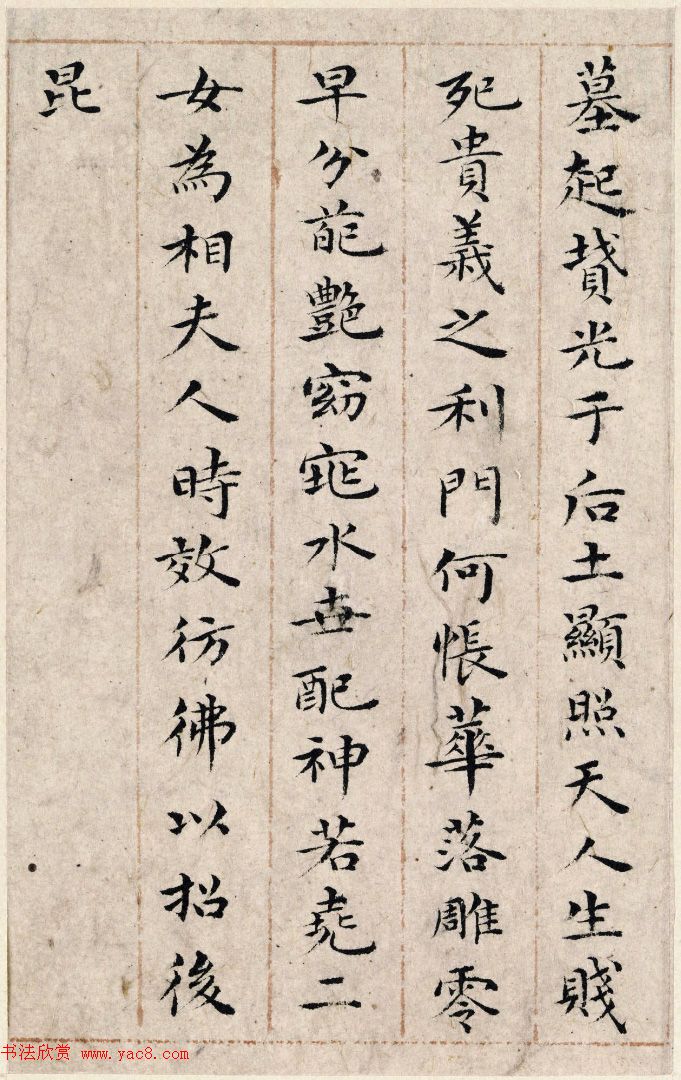 墓起墳光于后土顯照天人生賤
死貴義之利門何悵華落雕零
早分葩艷窈窕永世配神若堯二
女為相夫人時效彷彿以招後
昆
书法欣赏 www.yac8.com